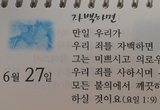 자백하면
만일 우리가
우리 죄를 자백하면
그는 미쁘시고 의로우
우리 죄를 사하시며
모든 불의에서 깨끗하
하실 것이요 (요일 1:9)
6월 27일